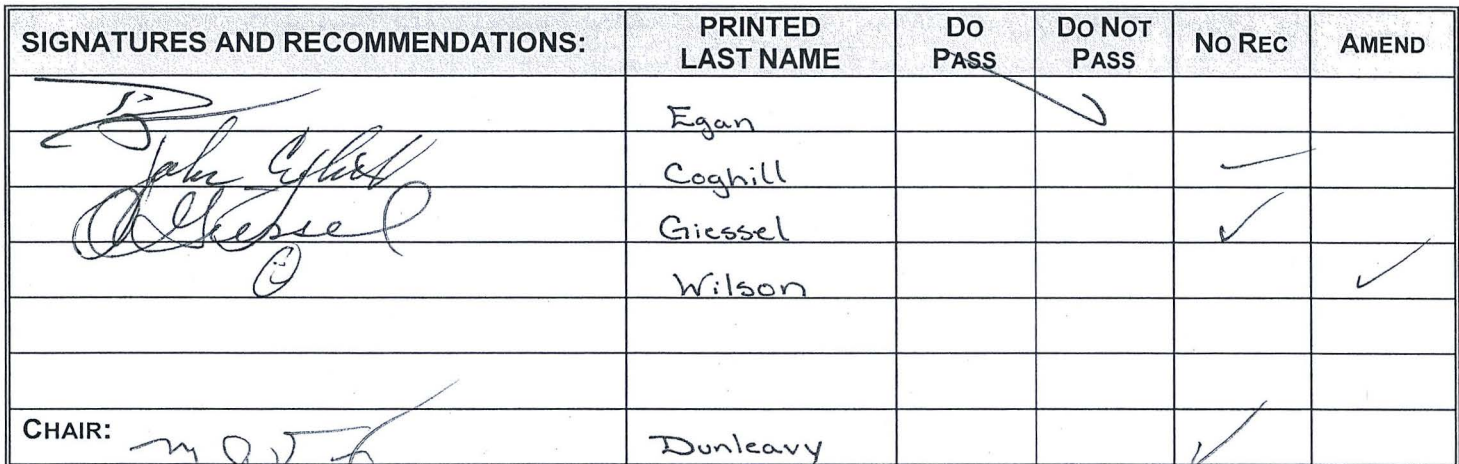 SIGNATURES AND RECOMMENDATIONS: PRINTED LAST NAME DO PASS DO NOT PASS NO REC AMEND
Egan ✓
John Coghill Coghill ✓
C Giessel Giessel ✓
Wilson ✓
CHAIR: Dunleavy ✓